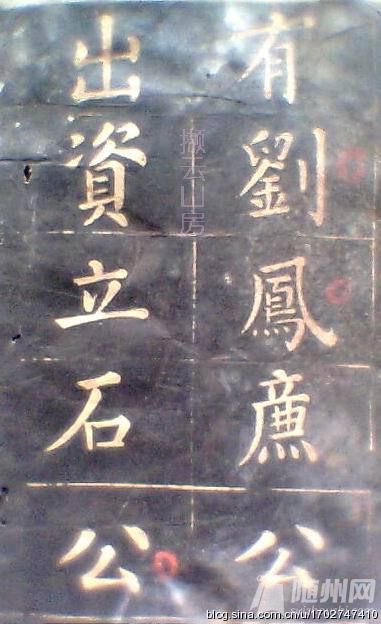 有劉鳳廉公
出資立石公
撷云山房
随州网
blog.sina.com.cn/u/1702747410